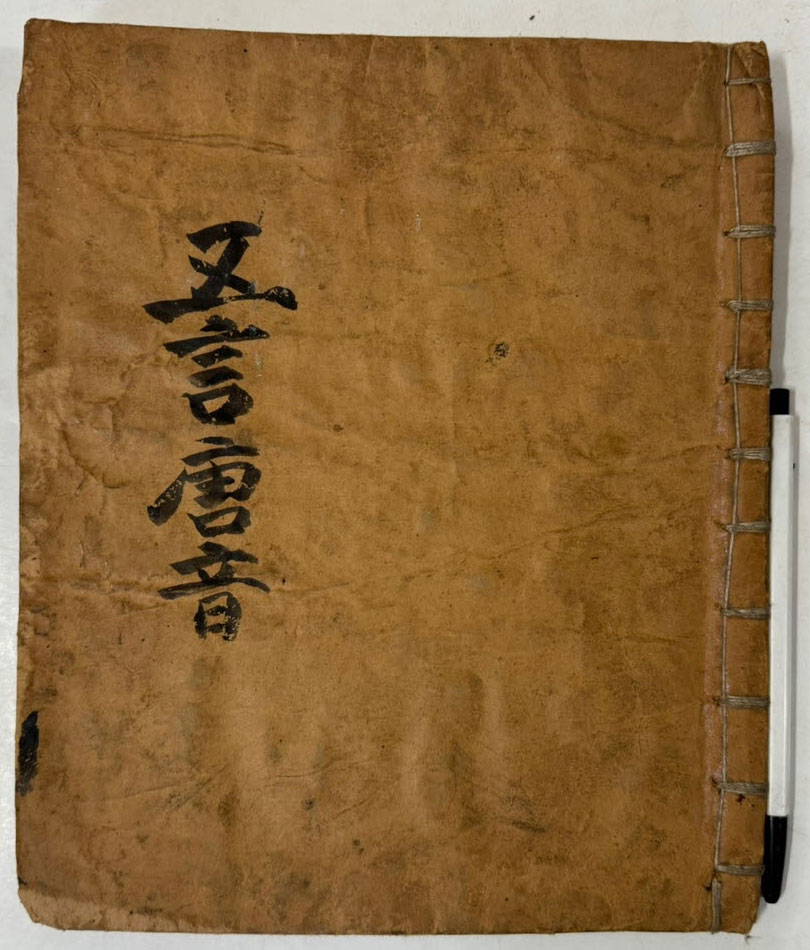 五言唐音